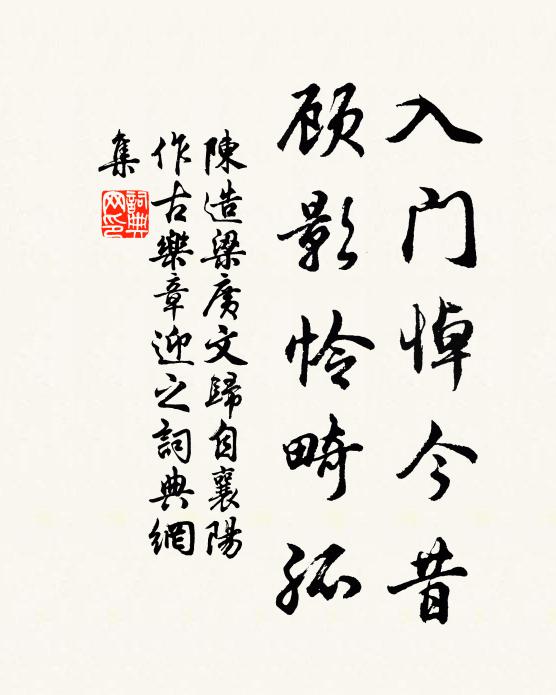 入门悼今昔
顾影怜畸孤
陳造梁廣文歸自襄陽
作古樂章迎之詞典網
集
詞典
网印